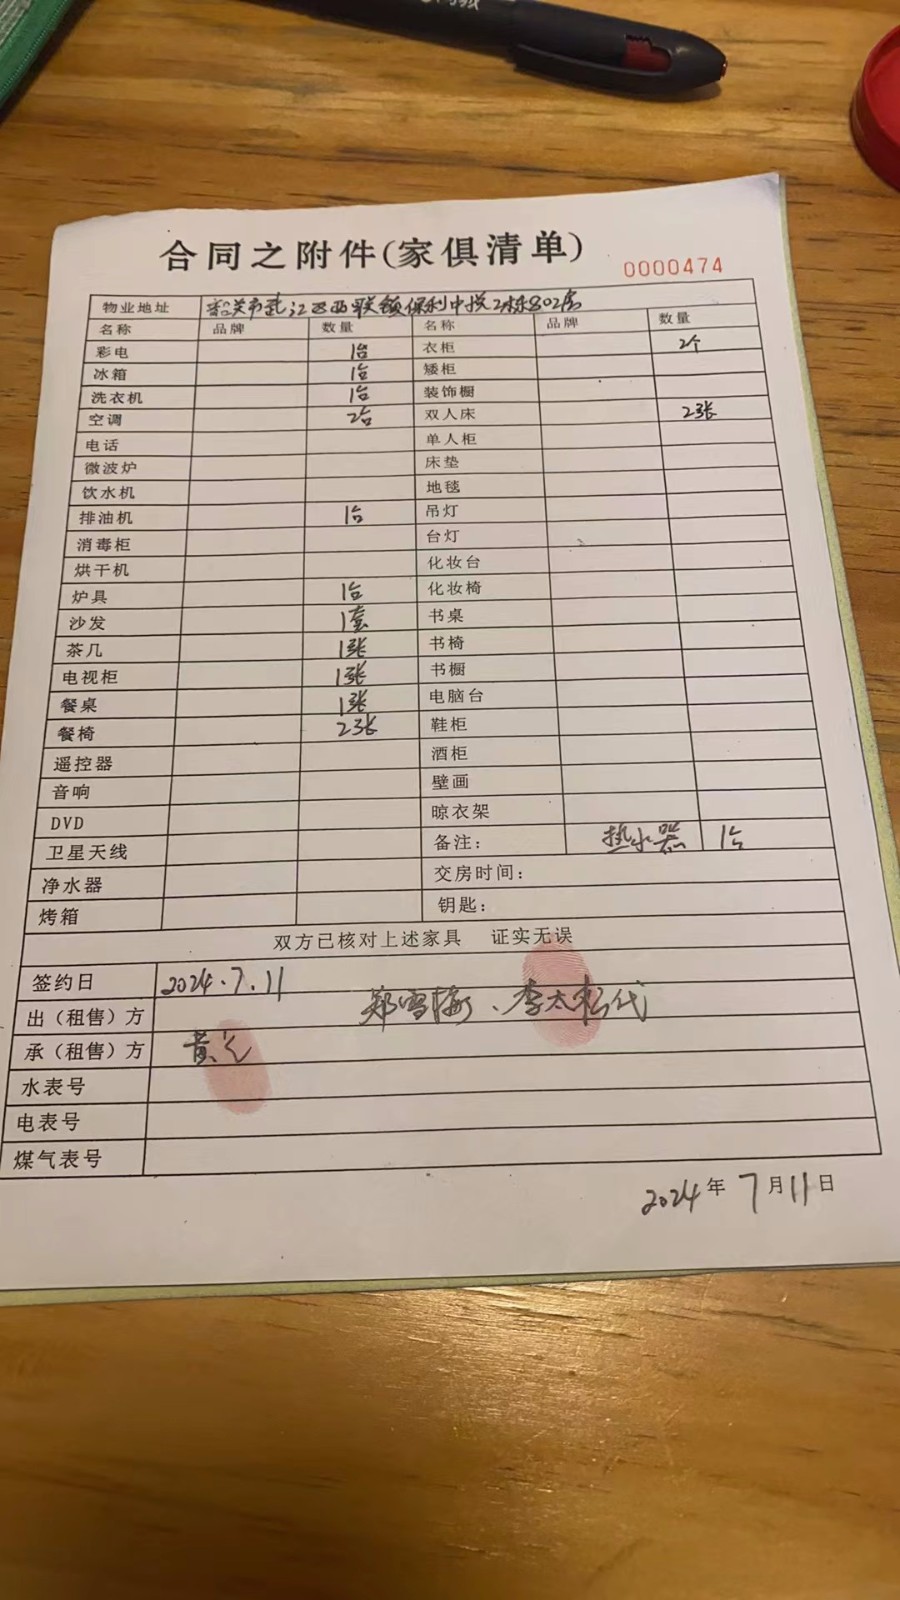 合同之附件(家俱清单)
0000474
物业地址 韶关市武江区西联镇保利中投2栋802房
名称 品牌 数量 名称 品牌 数量
彩电 1台 衣柜 2个
冰箱 1台 矮柜
洗衣机 1台 装饰橱
空调 2台 双人床 2张
电话 单人柜
微波炉 床垫
饮水机 地毯
排油机 1台 吊灯
消毒柜 台灯
烘干机 化妆台
炉具 1台 化妆椅
沙发 1套 书桌
茶几 1张 书椅
电视柜 1张 书橱
餐桌 1张 电脑台
餐椅 2张 鞋柜
遥控器 酒柜
音响 壁画
DVD 晾衣架
卫星天线 备注: 热水器 1台
净水器 交房时间:
烤箱 钥匙:
双方已核对上述家具 证实无误
签约日 2024.7.11
出(租售)方 郑雪梅、李太松代
承(租售)方 黄
水表号
电表号
煤气表号
2024年7月11日